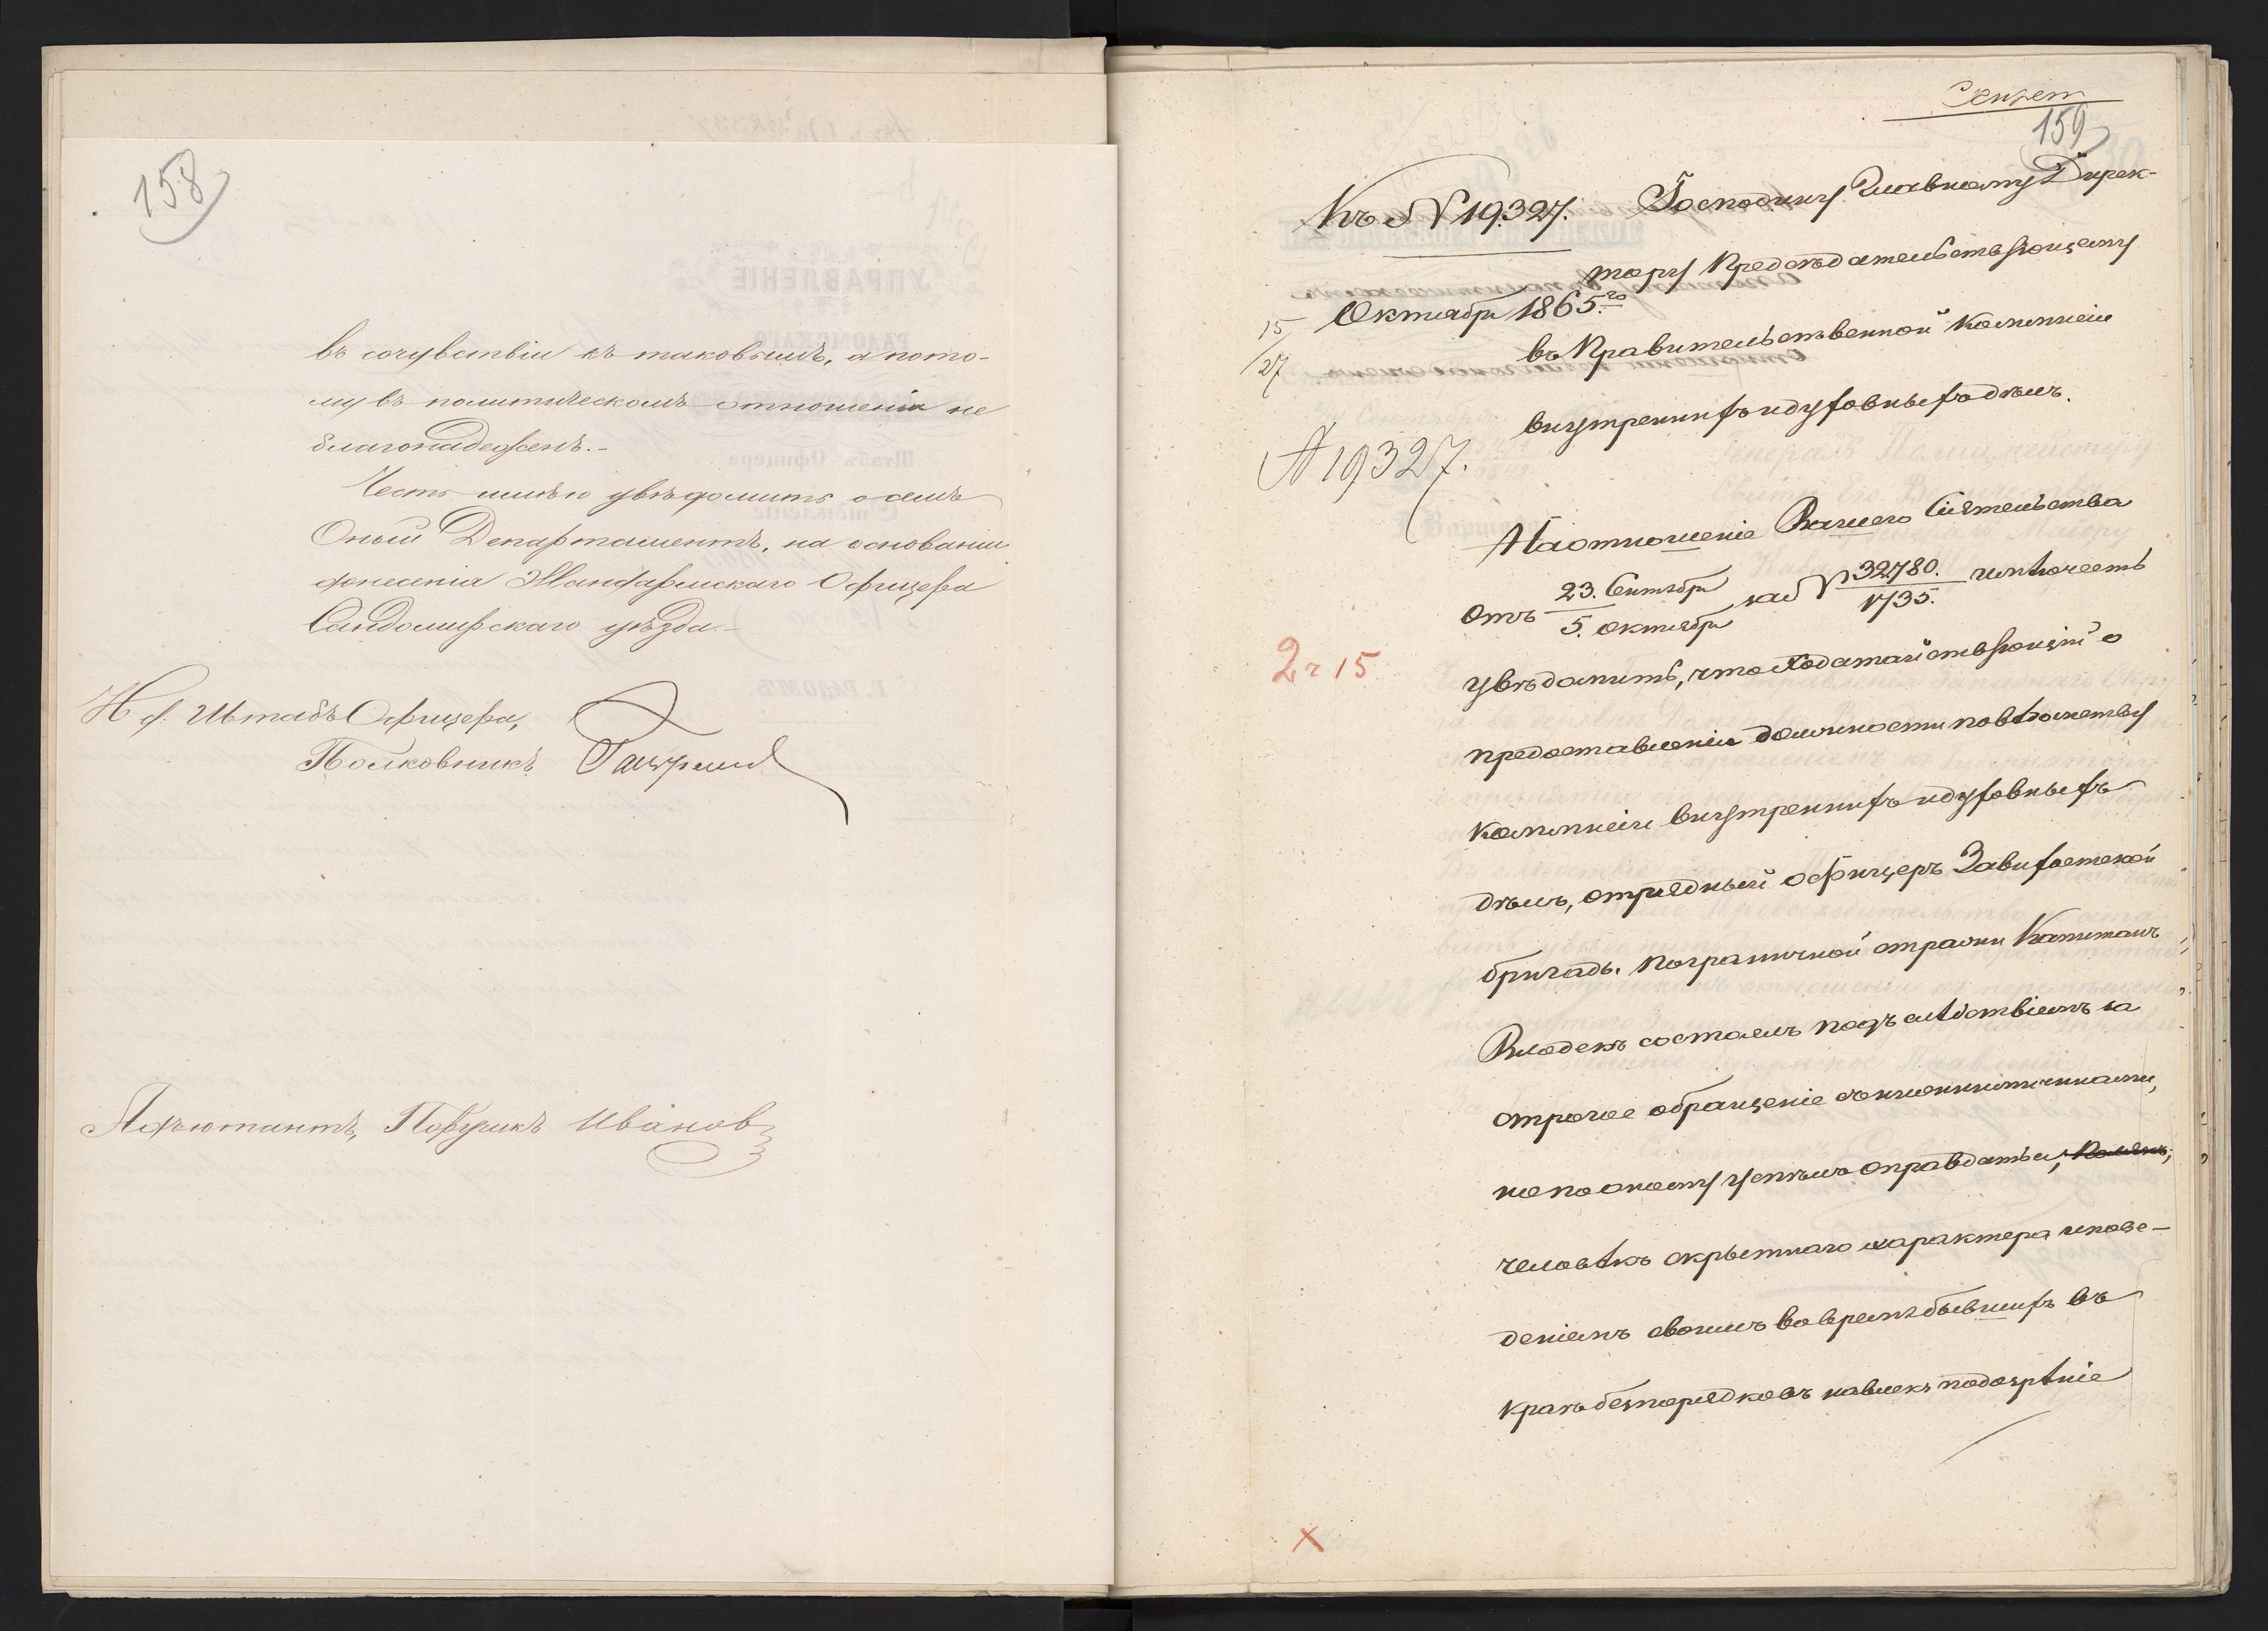 158
въ сочувствіи къ таковымъ, а пото-
му въ политическомъ отношеніи не
благонадеженъ.-
Честь имѣю увѣдомить о семъ
Оный Департаментъ, на основаніи
донесенія Жандармскаго Офицера
Сандомирскаго уѣзда.-
Штабъ Офицера,
Полковникъ
Адъютантъ, Поручикъ Иванов
Секрет
159
Къ № 19327.
Господину Главному Дирек-
тору Предсѣдательствующему
въ Правительственной Коммисіи
внутреннихъ и духовныхъ дѣлъ.
15/27 Октября 1865 го
№ 19327.
На отношеніе Вашего Сіятельства
отъ 23. Сентября / 5. Октября за № 32780. / 1735. имѣю честь
2 ч 15
увѣдомить, что ходатайствующій о
предоставленіи должности по вѣдомству
Коммисіи внутреннихъ и духовныхъ
дѣлъ, отрядный офицеръ Завихостской
бригады пограничной стражи Капитанъ
Владекъ состоялъ подъ слѣдствіемъ за
строгое обращеніе съ
но по оному успѣлъ оправдаться,
человѣкъ скрытнаго характера и пове-
деніемъ своимъ во время бывшихъ въ
краѣ безпорядковъ навлекъ подозрѣніе